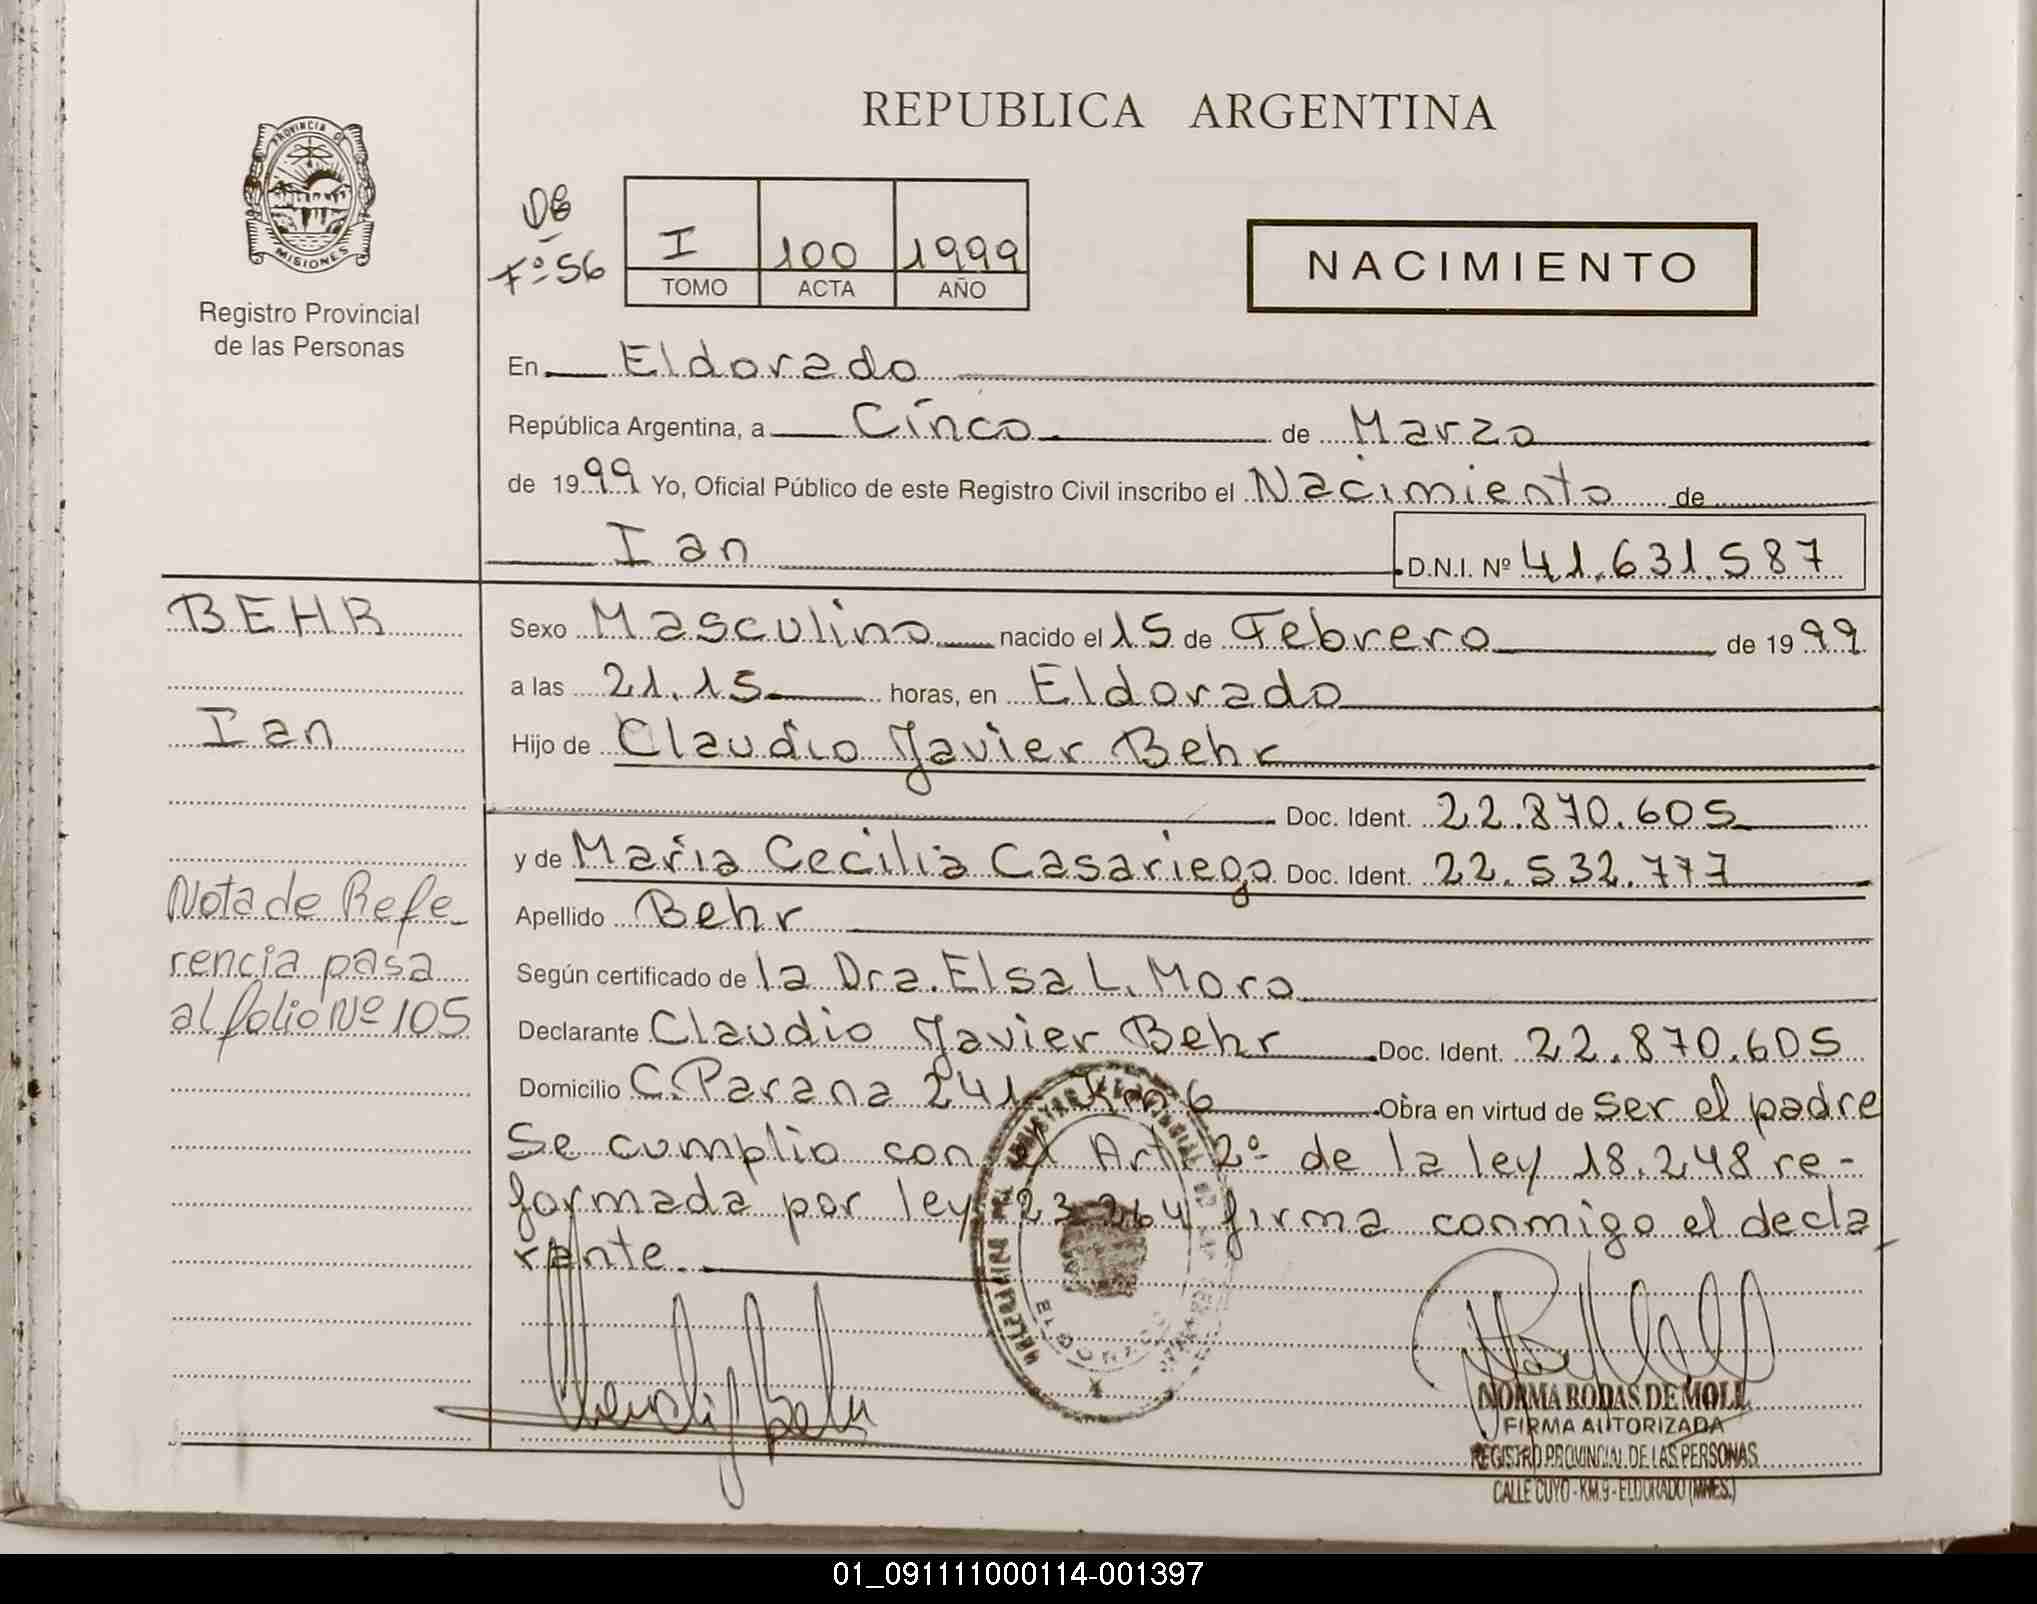 REPUBLICA ARGENTINA
PROVINCIA DE
MISIONES
Registro Provincial
de las Personas
Fº 56
I 100 1999
TOMO ACTA AÑO
NACIMIENTO
En Eldorado
República Argentina, a Cinco de Marzo
de 1999 Yo, Oficial Público de este Registro Civil inscribo el Nacimiento de
Ian D.N.I. Nº 41.631.587
BEHR
Ian
Nota de Refe-
rencia pasa
al folio Nº 105
Sexo Masculino nacido el 15 de Febrero de 1999
a las 21.15 horas, en Eldorado
Hijo de Claudio Javier Behr
Doc. Ident. 22.870.605
y de María Cecilia Casariego Doc. Ident. 22.532.777
Apellido Behr
Según certificado de la Dra. Elsa L. Moro
Declarante Claudio Javier Behr Doc. Ident. 22.870.605
Domicilio C. Parana 241 Km 6 Obra en virtud de ser el padre
Se cumplio con el Art. 2º de la ley 18.248 re-
formada por ley 23.264 firma conmigo el decla
rante
ELDORADO
NORMA RODAS DE MOLL
FIRMA AUTORIZADA
REGISTRO PROVINCIAL DE LAS PERSONAS
CALLE CUYO - KM. 9 - ELDORADO (MNES.)
01_091111000114-001397